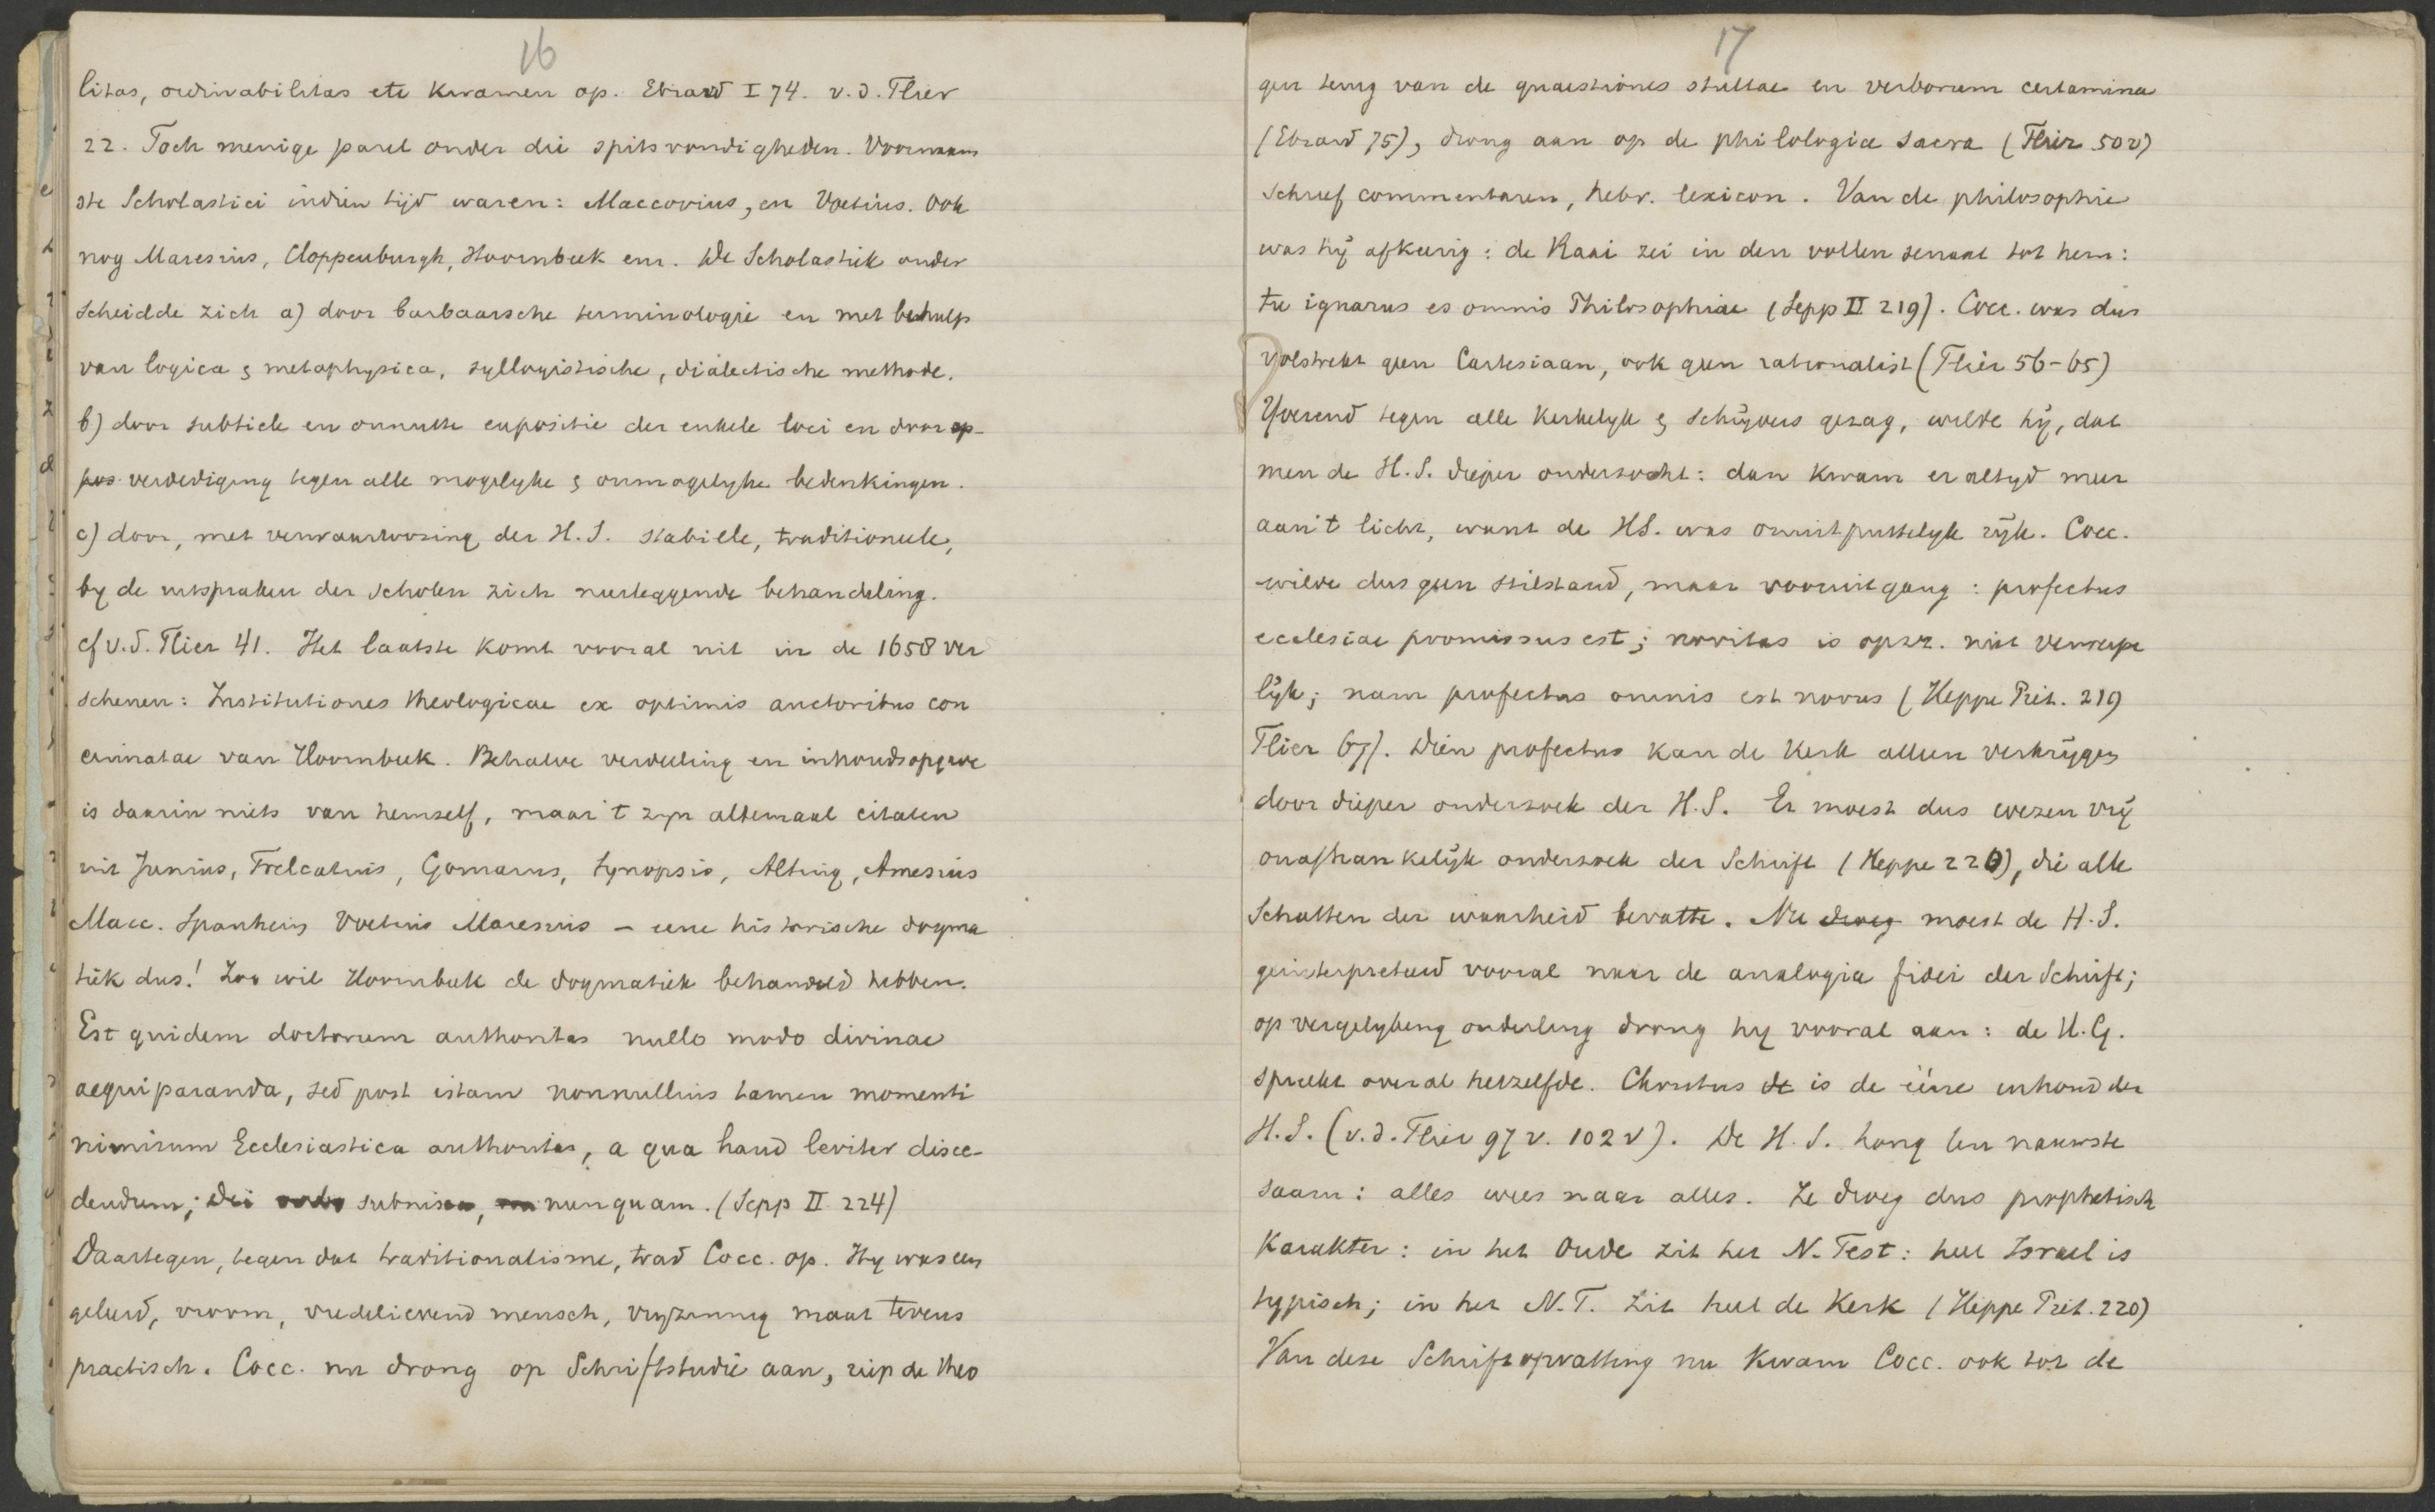 16
litas, ordinabilitas etc kwamen op. Ebrard I 74. v.d. Flier
22. Toch menige parel onder die spitsvondigheden. Voornaam
ste Scholastici indien tijd waren: Maccovius, en Voetius. Ook
nog Maresius, Cloppenburgh, Hoornbeek enz. De Scholastiek onder
scheidde zich a) door barbaarsche terminologie en met behulp
van logica & metaphysica, syllogistische, dialectische methode.
b) door subtiele en onnutte expositie der enkele loci en door
verdediging tegen alle mogelyke & onmogelyke bedenkingen.
c) door, met verwaarloozing der H.S. stabiele, traditioneele,
by de uitspraken der scholen zich neerleggende behandeling.
cf v.d. Flier 41. Het laatste komt vooral uit in de 1658 ver
schenen: Institutiones theologicae ex optimis auctoribus con
cinnatae van Hoornbeek. Behalve verdeeling en inhoudsopgave
is daarin niets van hemself, maar 't zyn altemaal citaten
uit Junius, Trelcatius, Gomarus, Synopsis, Alting, Amesius
Macc. Spanheim Voetius Maresius – eene historische dogma
tiek dus! Zoo wil Hoornbeek de dogmatiek behandeld hebben.
Est quidem doctorum authoritas nullo modo divinae
aequiparanda, sed post istam nonnullius tamen momenti
nimirum Ecclesiastica authoritas, a qua haud leviter disce-
dendum; Dei subnisa, nunquam. (Sepp II 224)
Daartegen, tegen dat traditionalisme, trad Cocc. op. Hy was een
geleerd, vroom, vredelievend mensch, vryzinnig maar tevens
practisch. Cocc. nu drong op Schriftstudie aan, riep de theo
17
gen terug van de quaestiones stultae en verborum certamina
(Ebrard 75), drong aan op de philologia sacra (Flier 50v)
schreef commentaren, hebr. lexicon. Van de philosophie
was hÿ afkeerig: de Raai zei in den vollen senaat tot hem:
tu ignarus es omnis Philosophiae (Sepp II 219). Cocc. was dus
volstrekt geen Cartesiaan, ook geen rationalist (Flier 56-65)
Yverend tegen alle kerkelyk & schÿvers gezag, wilde hÿ, dat
men de H.S. dieper onderzocht: dan kwam er altyd meer
aan 't licht, want de HS. was onuitputtelyk rÿk. Cocc.
wilde dus geen stilstand, maar vooruitgang: profectus
ecclesiae promissus est; novitas is opzz. niet verwerpe
lÿk; nam profectus omnis est novus (Heppe Piet. 219
Flier 67). Dien profectus kan de Kerk alleen verkrÿgen
door dieper onderzoek der H.S. Er moest dus wezen vrÿ
onafhankelÿk onderzoek der Schrift (Heppe 220), die alle
Schatten der waarheid bevatte. Nu dweg moest de H.S.
geinterpreteerd vooral naar de analogia fidei der Schrift;
op vergelyking onderling drong hy vooral aan: de H.G.
spreekt overal hetzelfde. Christus de is de ééne inhoud der
H.S. (v.d. Flier 97 v. 102 v). De H.S. hang ten nauwste
saam: alles wees naar alles. Ze droeg dus prophetisch
Karakter: in het Oude zit het N. Test: heel Israel is
typisch; in het N.T. zit heel de Kerk (Heppe Piet. 220)
Van deze Schriftopvatting nu kwam Cocc. ook tot de